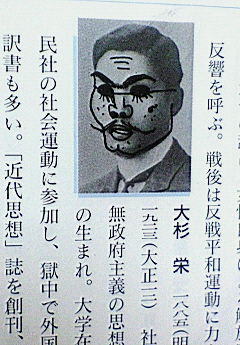 反響を呼ぶ。戦後は反戦平和運動に力
大杉 栄 一八八五(明
一九二三(大正一二) 社
無政府主義の思想
の生まれ。大学在
民社の社会運動に参加し、獄中で外国
訳書も多い。「近代思想」誌を創刊、